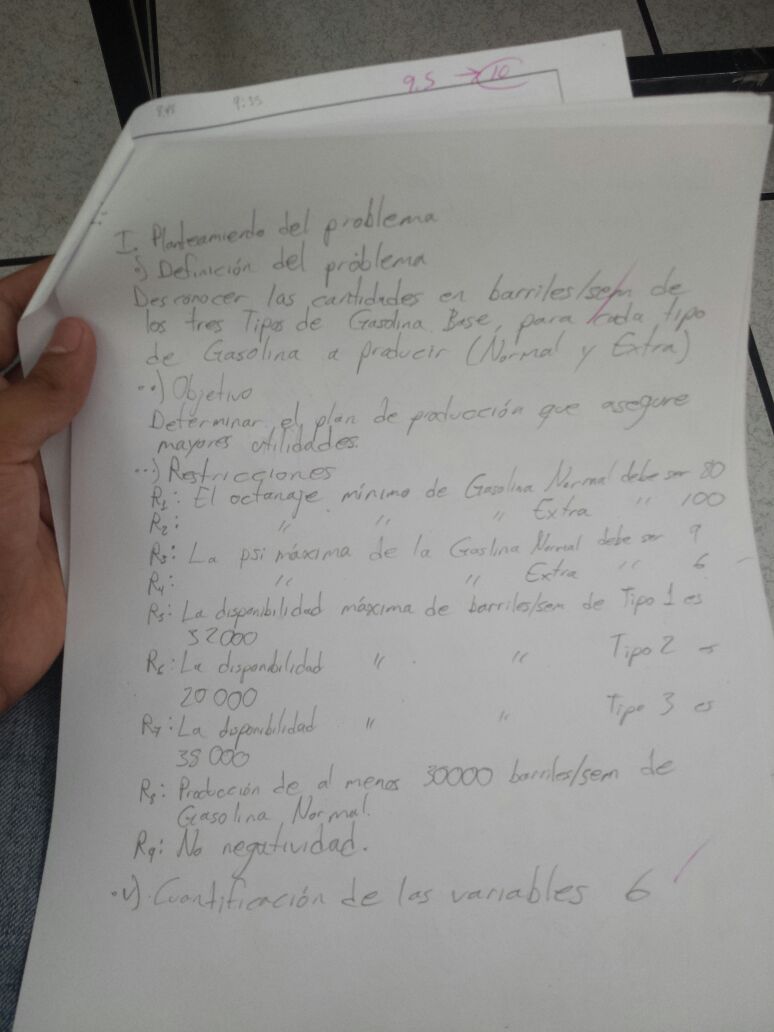 9.5 → 10
9:35
I. Planteamiento del problema
.) Definición del problema
Desconocer las cantidades en barriles/sem de
los tres Tipos de Gasolina Base, para cada tipo
de Gasolina a producir (Normal y Extra)
..) Objetivo
Determinar el plan de producción que asegure
mayores utilidades.
...) Restricciones
R1: El octanaje mínimo de Gasolina Normal debe ser 80
R2: " " " Extra " 100
R3: La psi máxima de la Gasolina Normal debe ser 9
R4: " " Extra " 6
R5: La disponibilidad máxima de barriles/sem de Tipo 1 es
32000
R6: La disponibilidad " " Tipo 2 es
20 000
R7: La disponibilidad " " Tipo 3 es
38 000
R8: Producción de al menos 30000 barriles/sem de
Gasolina Normal.
R9: No negatividad.
.v) Cuantificación de las variables 6